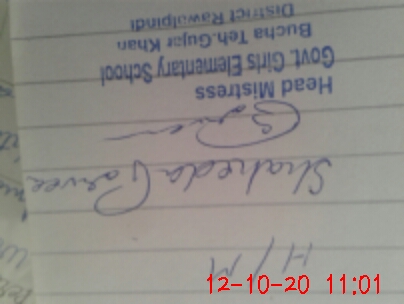 H/M
Shaheda Parveen
Head Mistress
Govt. Girls Elementary School
Bucha Teh.Gujar Khan
District Rawalpindi
12-10-20 11:01